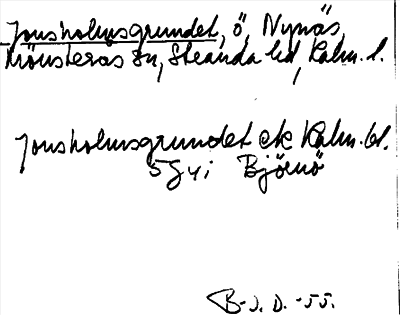 Jonsholmsgrundet, ö, Nynäs,
Mönsterås sn, Stranda hd, Kalm. l.
Jonsholmsgrundet ek Kalm. bl.
5 G y i Björnö
B-J. D. -55.